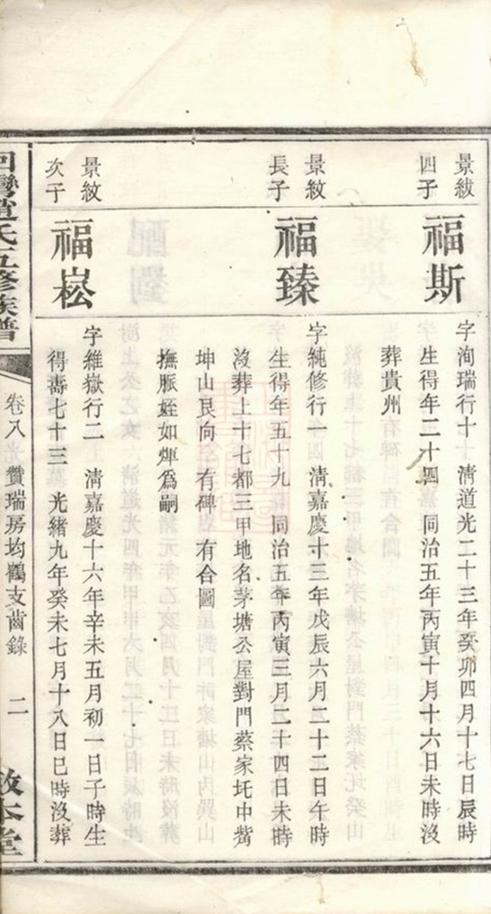 景紱
四子
福斯
字洵瑞行十 清道光二十三年癸卯四月十七日辰時
生得年二十四 同治五年丙寅十月十六日未時沒
葬貴州
景紋
長子
福臻
字純修行一 清嘉慶十三年戊辰六月二十二日午時
生得年五十九 同治五年丙寅三月二十四日未時
沒葬上十七都三甲地名茅塘公屋對門蔡家圫中嘴
坤山艮向 有碑 有合圖
撫脈姪如煇爲嗣
景紋
次子
福崧
字維嶽行二 清嘉慶十六年辛未五月初一日子時生
得壽七十三 光緒九年癸未七月十八日巳時沒葬
趙氏五修族譜
卷八 贊瑞房均鶴支齒錄 二
敦本堂